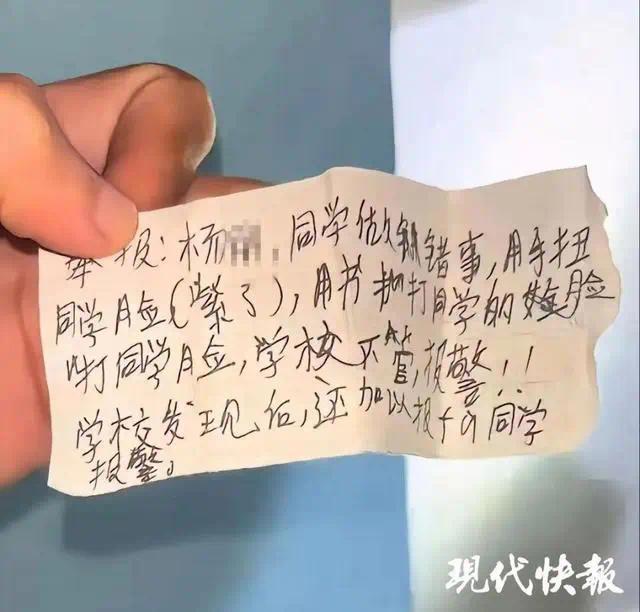 举报：杨 同学做错事，用手扭
同学月脸（紫了），用书抽打同学的脸
咋打同学月脸，学校不管，报警！！
学校发现后，还加以报 同学
报警。
现代快報